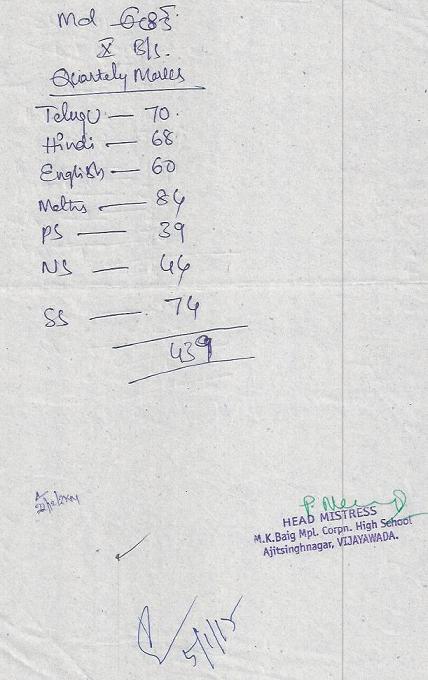 Md
X B/s.
Quartely Marks
Telugu — 70.
Hindi — 68
English — 60
Maths — 84
PS — 39
NS — 44
SS — 74
439
P.
HEAD MISTRESS
M.K.Baig Mpl. Corpn. High School
Ajitsinghnagar, VIJAYAWADA.
5/1/15